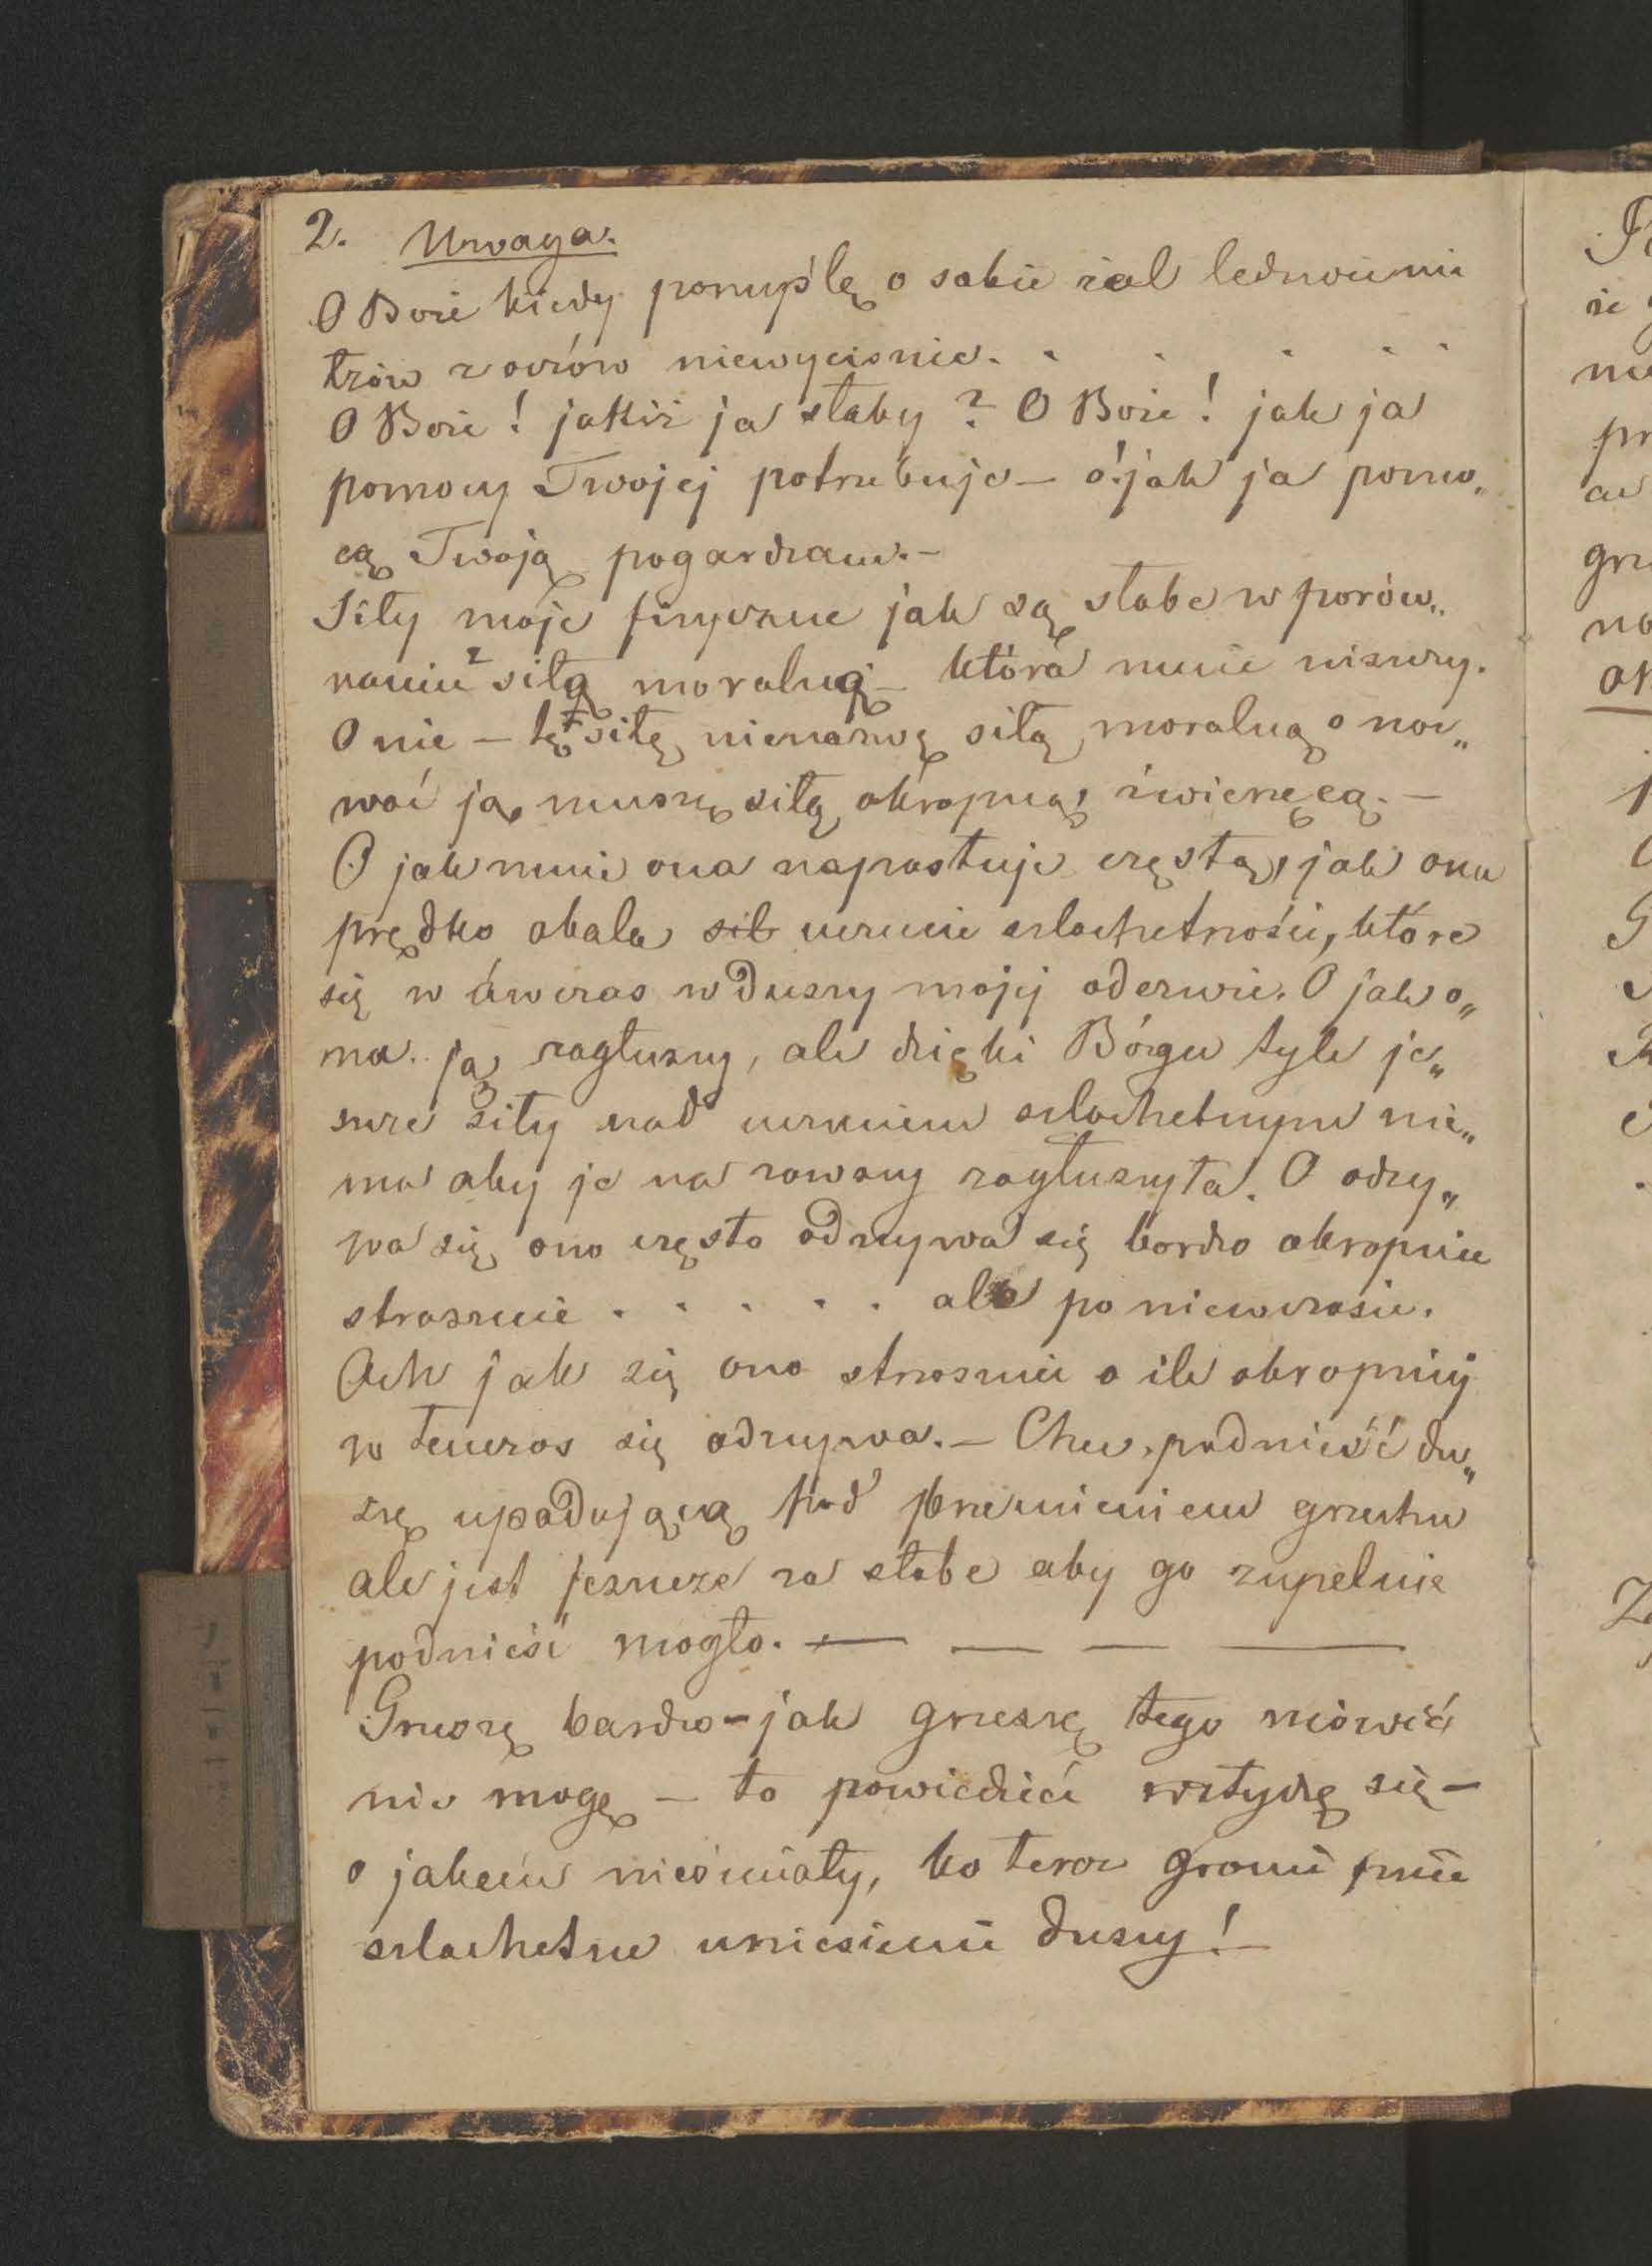 2. Uwaga.
O Boże kiedy pomyślę o sobie żal ledwie mi
łzów z oczów niewyciśnie. . . . . .
O Boże! jakiż ja słaby? O Boże! jak ja
pomocy Twojej potrzebuje – o! jak ja pomo„
cą Twoją pogardzam. –
Siły moje fizyczne jak są słabe w porów„
naniu z siłą moralną – która mnie niszczy.
O nie – tę siłę nienazwę siłą moralną o naz„
wać ją muszę siłą okropną, źwierzęcą. –
O jak mnie ona napastuje częstą, jak ona
prędko obala sił uczucie szlachetności, które
się w ówczas w duszy mojej oderwie. O jak o„
na ją zagłuszy, ale dzięki Bógu tyle je„
szcze siły nad uczuciem szlachetnym nie„
ma aby je na zawszy zagłuszyła. O odzy„
wa się ono często odzzywa się bardzo okropnie
strasznie . . . . . ale po niewczasie.
Ach jak się ono strasznie o ile okropniej
w tenczas się odzzywa. – Chce podnieść du„
szę upadającą pod brzemieniem grzechu
ale jest jeszcze za słabe aby go zupelnie
podnieść mogło. — — — —
Grzeszę bardzo – jak grzeszę tego mówić
nie mogę – to powiedzieć wztydzę się –
o jakem nieśmiały, bo teraz gromi mnie
szlachetne uniesienie duszy! –